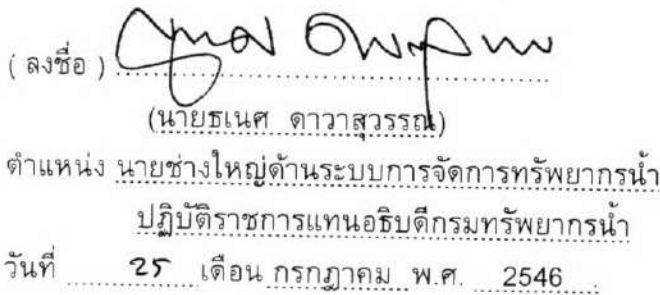 ( ลงชื่อ )
(นายธเนศ ดาวาสุวรรณ)
ตำแหน่ง นายช่างใหญ่ด้านระบบการจัดการทรัพยากรน้ำ
ปฏิบัติราชการแทนอธิบดีกรมทรัพยากรน้ำ
วันที่ 25 เดือน กรกฎาคม พ.ศ. 2546